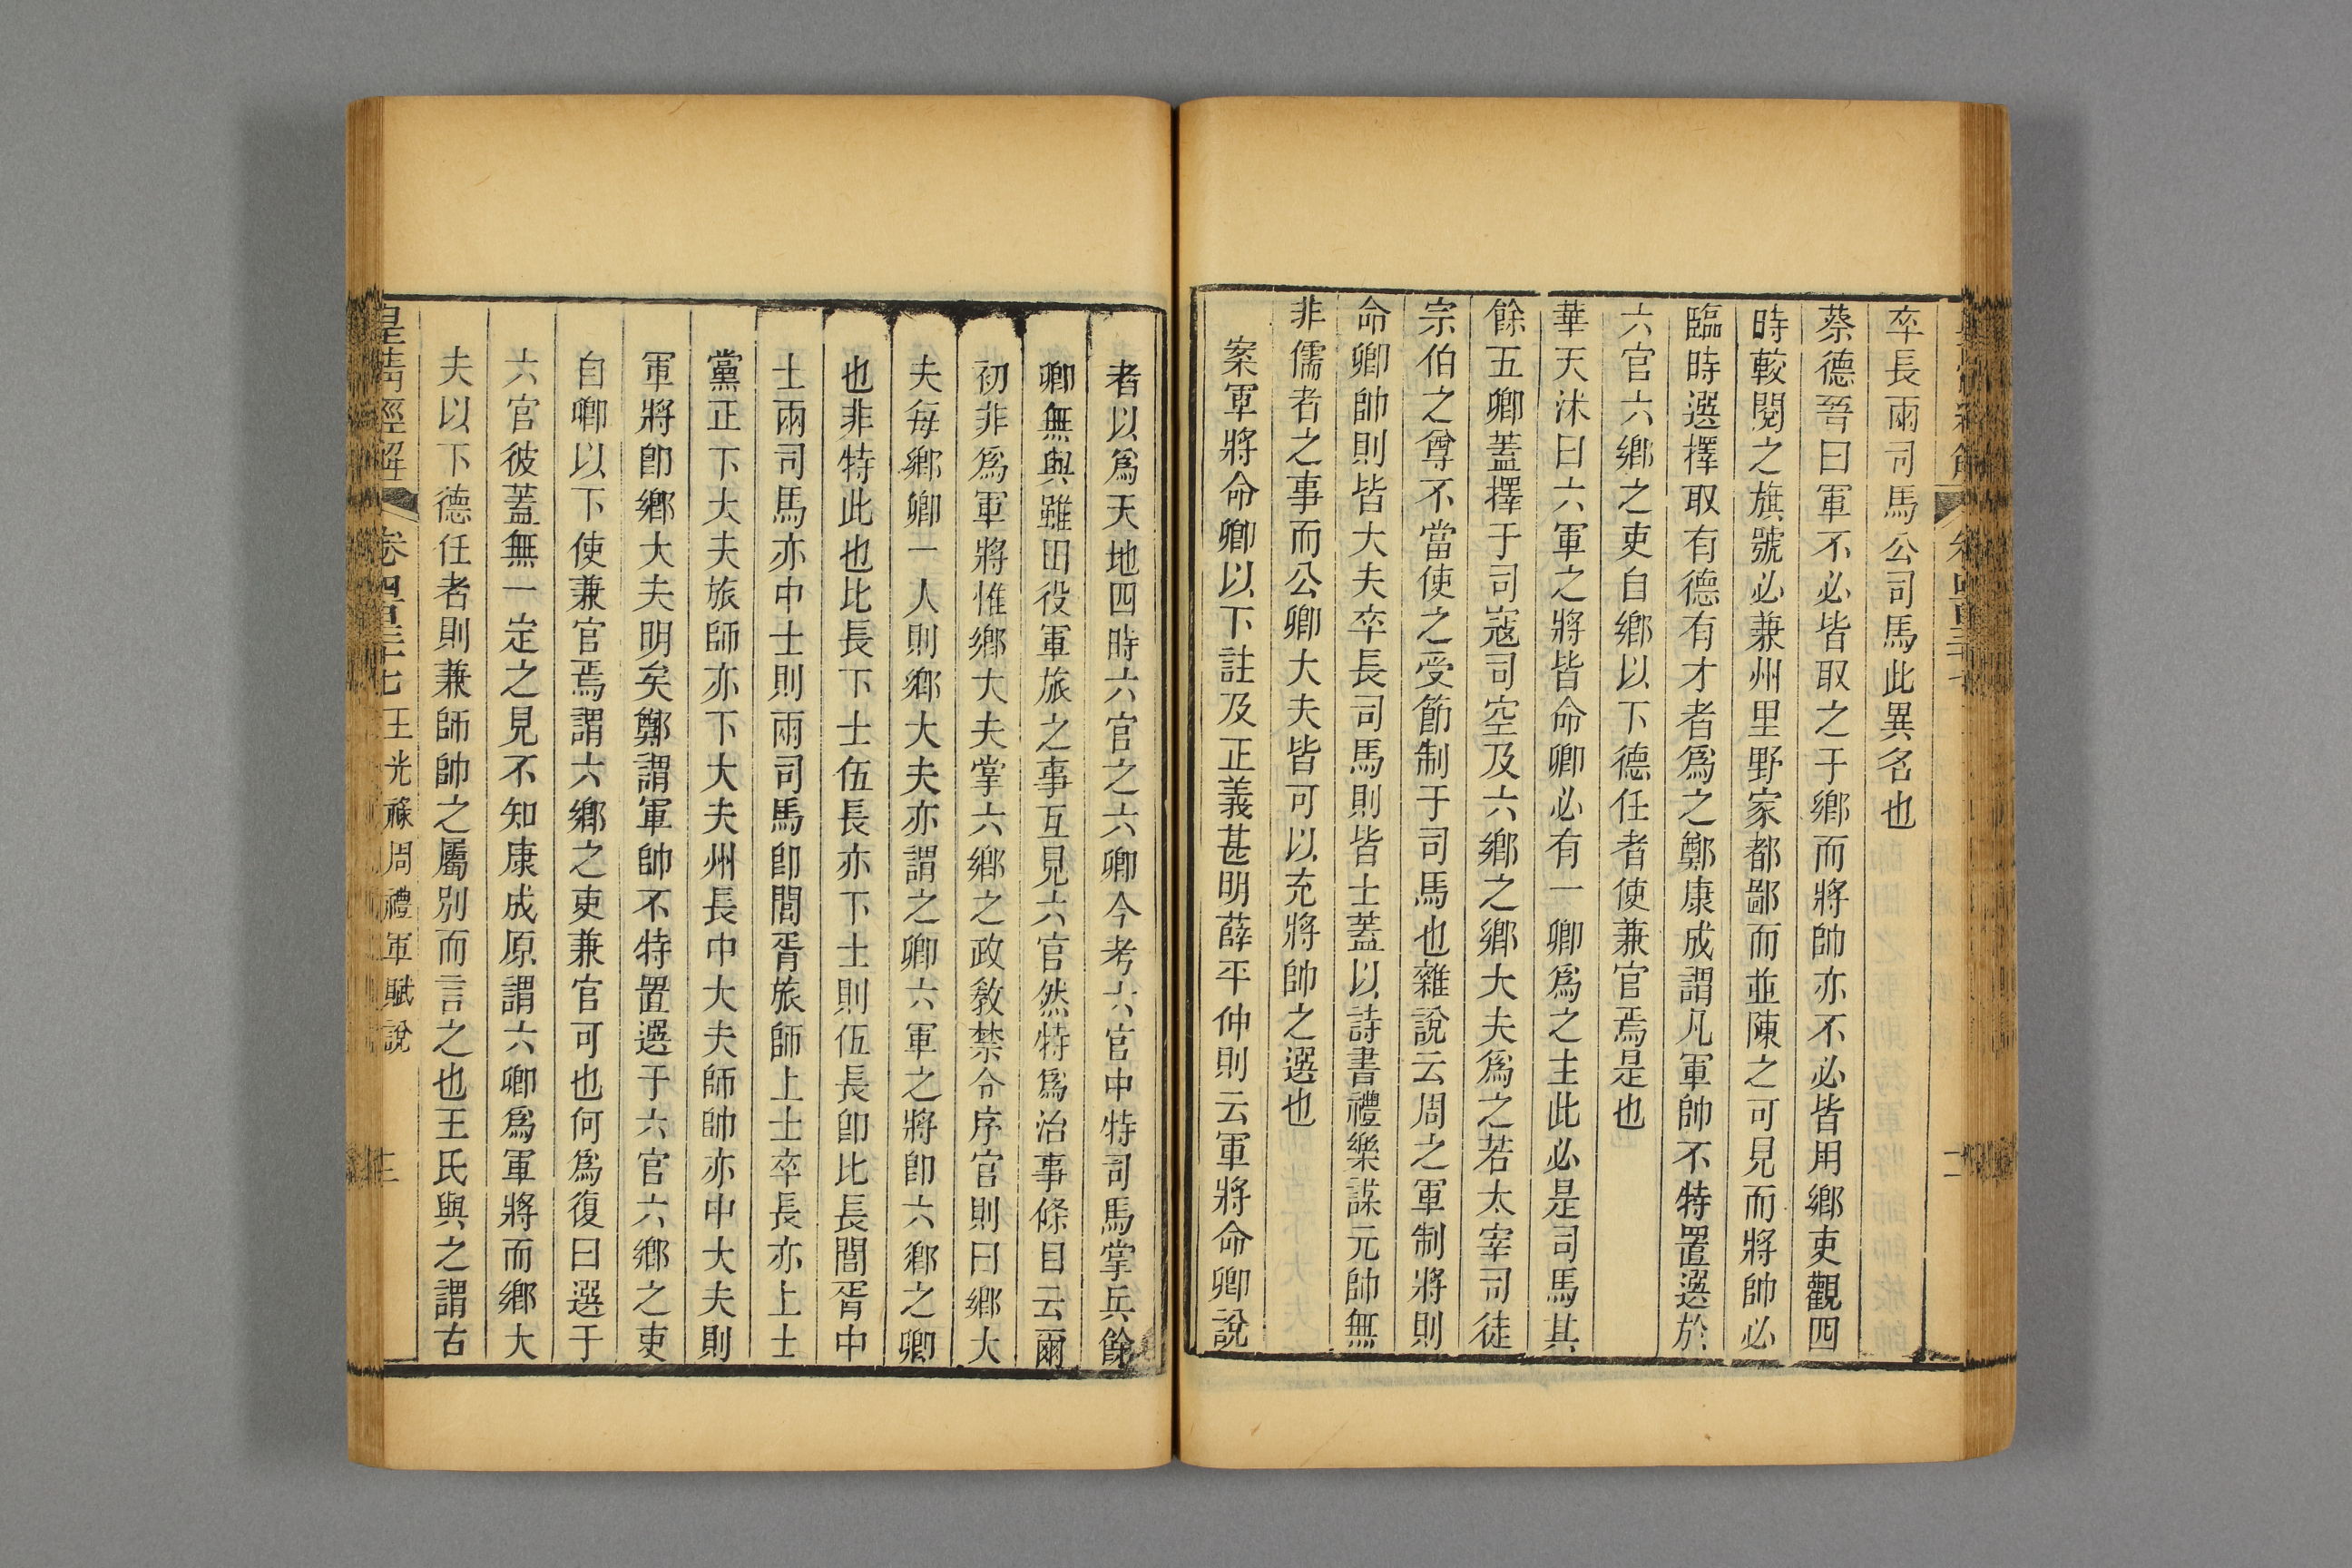 卒長兩司馬公司馬此異名也
蔡德晉曰軍不必皆取之于鄉而將帥亦不必皆用鄉吏觀四
時較閱之旗號必兼州里野家都鄙而並陳之可見而將帥必
臨時選擇取有德有才者爲之鄭康成謂凡軍帥不特置選於
六官六鄉之吏自鄉以下德任者使兼官焉是也
華天沐曰六軍之將皆命卿必有一卿爲之主此必是司馬其
餘五卿蓋擇于司寇司空及六鄉之鄉大夫爲之若太宰司徒
宗伯之尊不當使之受節制于司馬也雜說云周之軍制將則
命卿帥則皆大夫卒長司馬則皆士蓋以詩書禮樂謀元帥無
非儒者之事而公卿大夫皆可以充將帥之選也
案軍將命卿以下註及正義甚明薛平仲則云軍將命卿說
者以爲天地四時六官之六卿今考六官中特司馬掌兵餘
卿無與雖田役軍旅之事互見六官然特爲治事條目云爾
初非爲軍將惟鄉大夫掌六鄉之政敎禁令序官則曰鄉大
夫每鄉卿一人則鄉大夫亦謂之卿六軍之將卽六鄉之卿
也非特此也比長下士伍長亦下士則伍長卽比長閭胥中
士兩司馬亦中士則兩司馬卽閭胥旅師上士卒長亦上士
黨正下大夫旅師亦下大夫州長中大夫師帥亦中大夫則
軍將卽鄉大夫明矣鄭謂軍帥不特置選于六官六鄉之吏
自卿以下使兼官焉謂六鄉之吏兼官可也何爲復曰選于
六官彼蓋無一定之見不知康成原謂六卿爲軍將而鄉大
夫以下德任者則兼師帥之屬別而言之也王氏與之謂古
皇淸經解 卷四百三十七 王光祿周禮軍賦說 三